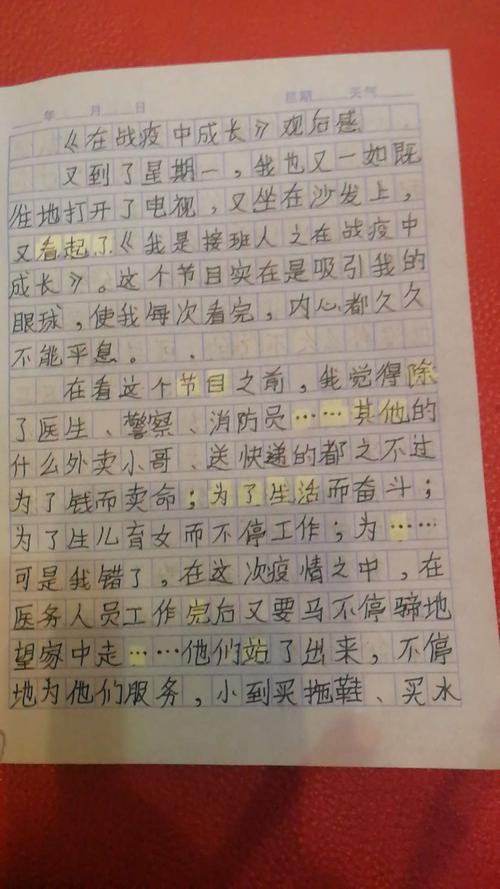 年 月 日 星期 天气
《在战疫中成长》观后感
又到了星期一，我也又一如既
往地打开了电视，又坐在沙发上，
又看起了《我是接班人之在战疫中
成长》。这个节目实在是吸引我的
眼球，使我每次看完，内心都久久
不能平息。
在看这个节目之前，我觉得除
了医生、警察、消防员……其他的
什么外卖小哥、送快递的都之不过
为了钱而卖命；为了生活而奋斗；
为了生儿育女而不停工作；为……
可是我错了，在这次疫情之中，在
医务人员工作完后又要马不停蹄地
望家中走……他们站了出来，不停
地为他们服务，小到买拖鞋、买水